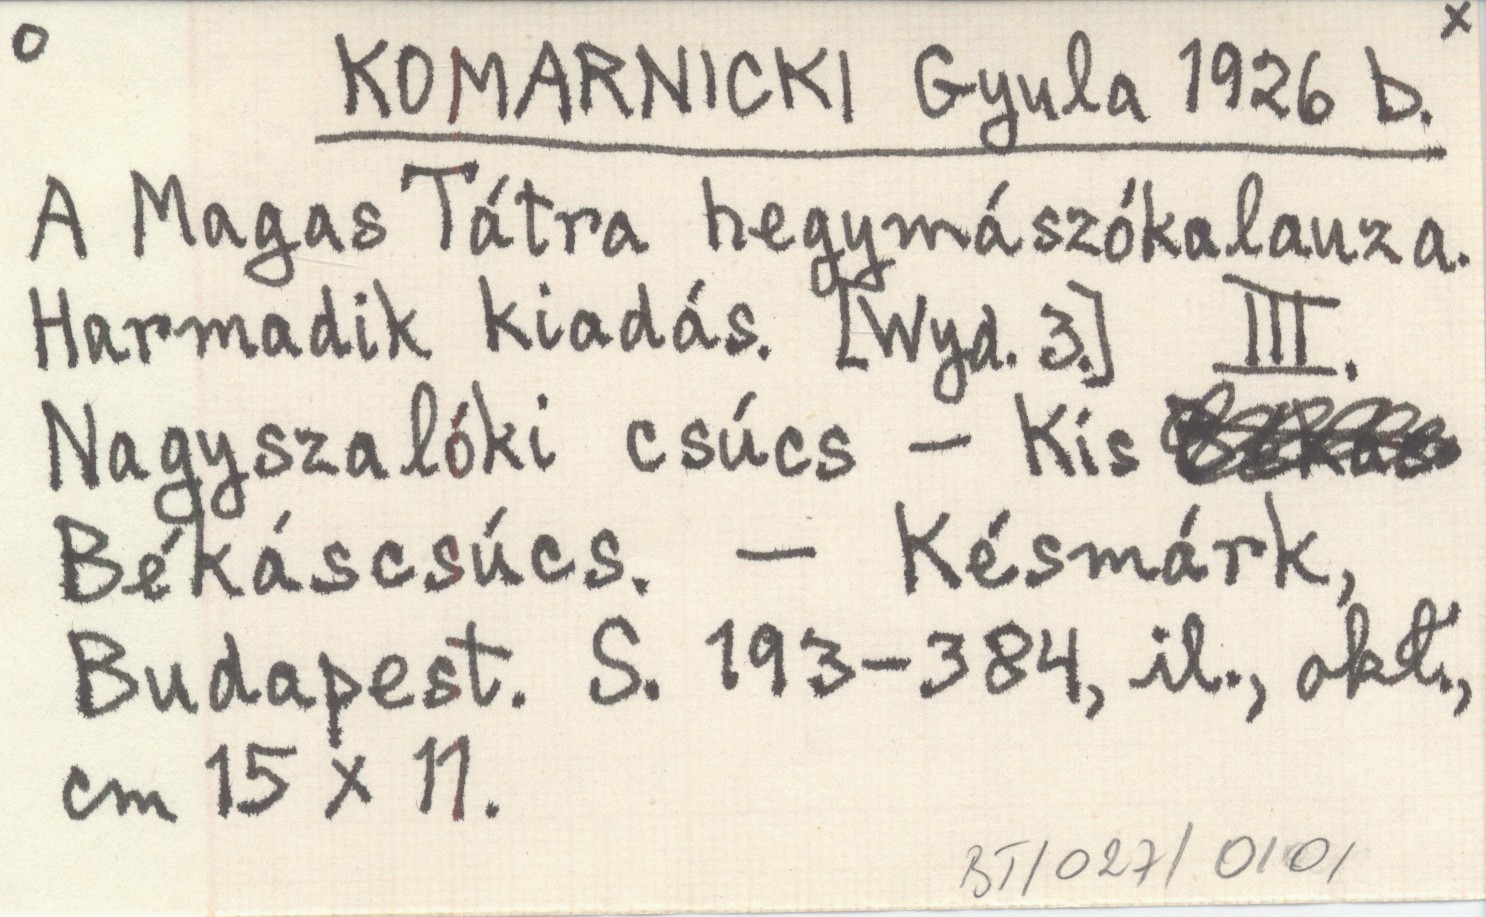 o x
KOMARNICKI Gyula 1926 b.
A Magas Tátra hegymászókalauza.
Harmadik kiadás. [Wyd. 3.] III.
Nagyszalóki csúcs — Kis
Békáscsúcs. — Késmárk,
Budapest. S. 193-384, il., okł.,
cm 15 x 11.
BT/027/0101